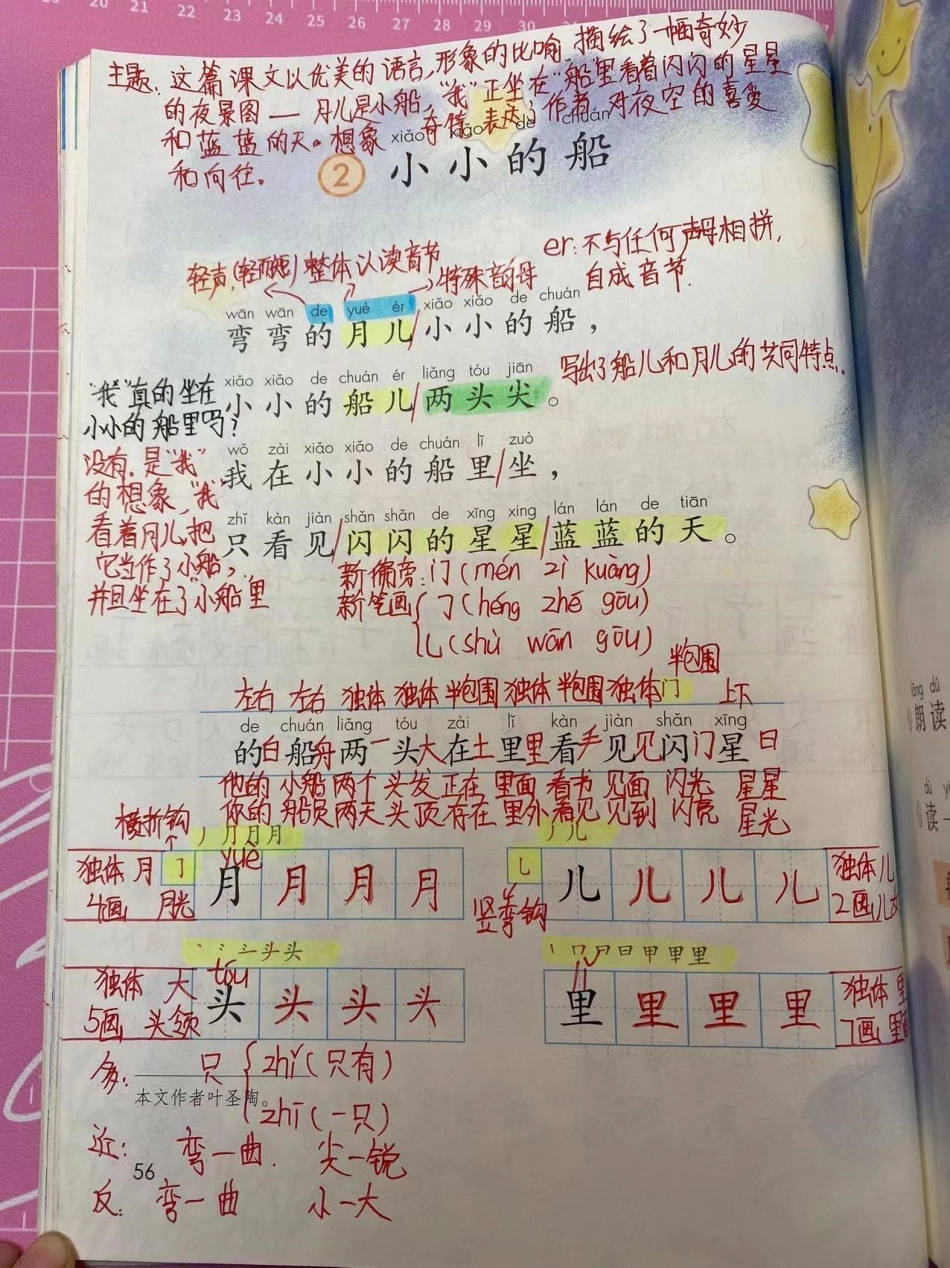 主题：这篇课文以优美的语言，形象的比喻 描绘了一幅奇妙
的夜景图 — 月儿是小船，“我”正坐在“船”里看着闪闪的星星
和蓝蓝的天。想象奇特，表达了作者 对夜空的喜爱
和向往。
xiǎo xiǎo de chuán
2 小小的船
轻声（轻而短） 整体认读音节
特殊韵母
er：不与任何声母相拼，
自成音节．
wān wān de yuè ér xiǎo xiǎo de chuán
弯弯的月儿/小小的船，
写出了船儿和月儿的共同特点．
xiǎo xiǎo de chuán ér liǎng tóu jiān
小小的船儿/两头尖。
“我”真的坐在
小小的船里吗？
wǒ zài xiǎo xiǎo de chuán lǐ zuò
我在小小的船里/坐，
zhǐ kàn jiàn shǎn shǎn de xīng xing lán lán de tiān
只看见/闪闪的星星/蓝蓝的天。
没有，是“我”
的想象，“我”
看着月儿把
它当作了小船，
并且坐在了“小船”里
新偏旁：门（mén zì kuàng）
新笔画 ㇆（héng zhé gōu）
乚（shù wān gōu）
半包围
左右 左右 独体 独体 半包围 独体 半包围 独体 门 上下
de chuán liǎng tóu zài lǐ kàn jiàn shǎn xīng
的白船舟两一头大在土里里看手见见闪门星日
他的 小船 两个 头发 正在 里面 看书 见面 闪光 星星
你的 船员 两天 头顶 存在 里外 看见 见到 闪亮 星光
横折钩
丿 月 月 月
独体 月 ㇆ yuè 月 月 月 月
4画 月光
丿 儿
乚 儿 儿 儿 儿 独体 儿
竖弯钩
2画 儿女
丶 头 头
独体 大 tóu 头 头 头 头
5画 头领
丨 口 日 日 甲 甲 里
lǐ 里 里 里 里 独体 里
7画 里面
多： 只 zhǐ（只有）
zhī（一只）
本文作者叶圣陶。
近： 弯—曲． 尖—锐
56
反： 弯—曲 小—大
lǎng dú
朗读
dú
读